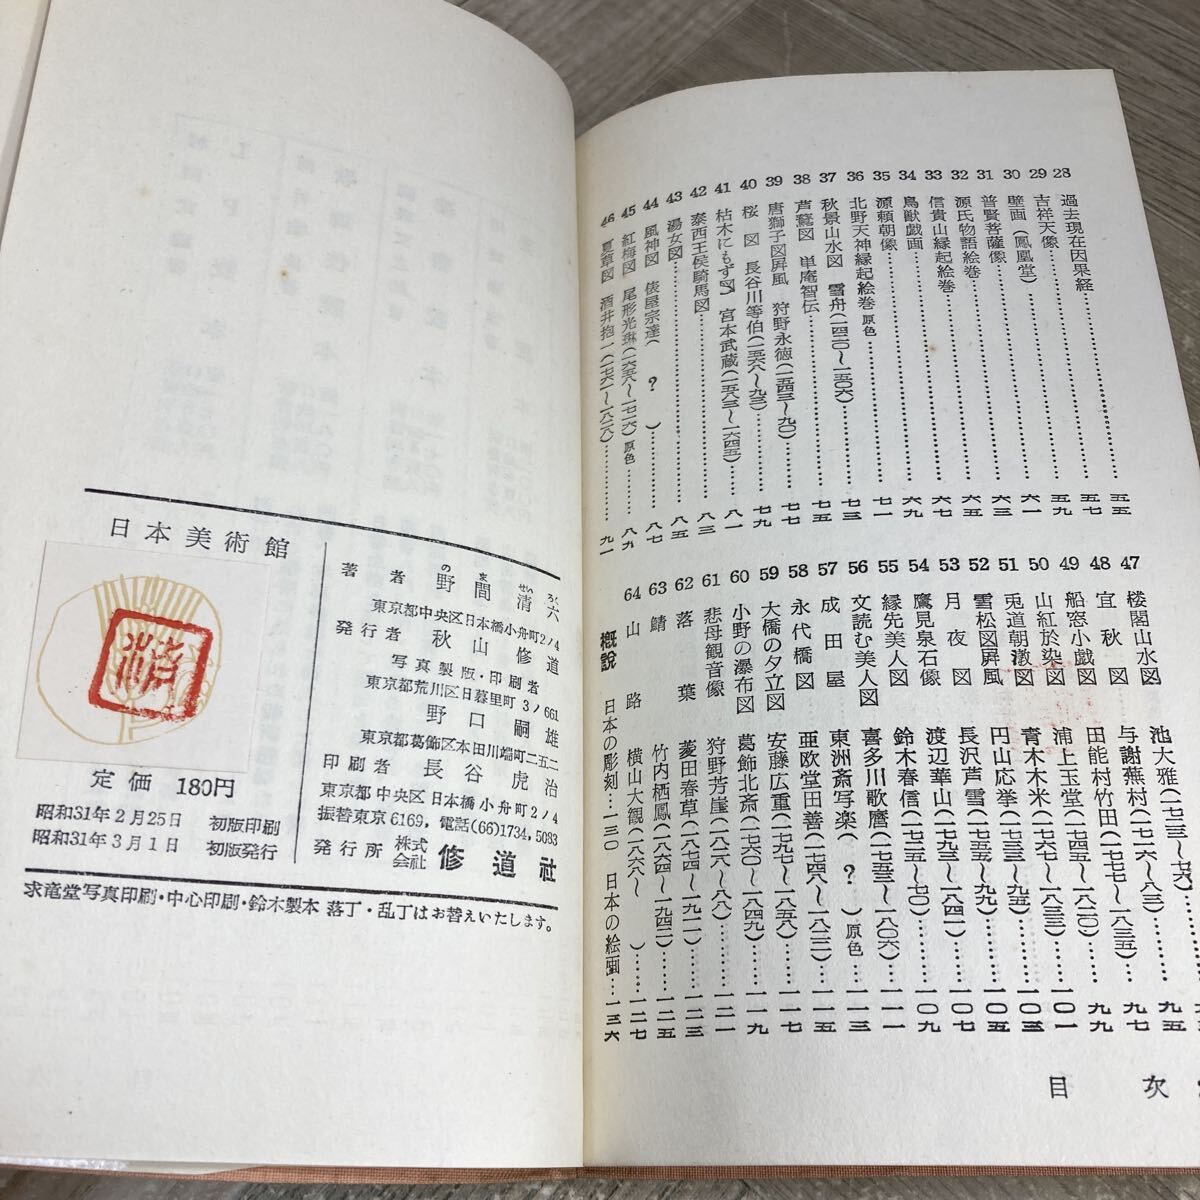 28 過去現在因果経……五五
29 吉祥天像……五九
30 壁画(鳳凰堂)……六一
31 普賢菩薩像……六三
32 源氏物語絵巻……六五
33 信貴山縁起絵巻……六七
34 鳥獣戯画……六九
35 源頼朝像……七一
36 北野天神縁起絵巻 原色……七三
37 秋景山水図 雪舟(一四二〇〜一五〇六)……七五
38 芦鷺図 単庵智伝……七七
39 唐獅子図屏風 狩野永徳(一五四三〜九〇)
40 桜図 長谷川等伯(一五六八〜九三)……七九
41 枯木にもず図 宮本武蔵(一五八三〜一六四五)……八一
42 泰西王侯騎馬図……八三
43 湯女図……八五
44 風神図 俵屋宗達( ? )……八七
45 紅梅図 尾形光琳(一六五八〜一七一六)原色……八九
46 夏草図 酒井抱一(一七六一〜一八二八)……九一
47 楼閣山水図 池大雅(一七二三〜七六)
48 宜秋図 与謝蕪村(一七一六〜八三)……九五
49 船窓小戯図 田能村竹田(一七七七〜一八三五)……九七
50 山紅於染図 浦上玉堂(一七四五〜……九九
51 兎道朝潡図 青木木米(一七六七〜……一〇一
52 雪松図屏風 円山応挙(一七三三〜九五)……一〇三
53 月夜図 長沢芦雪(一七五五〜九九)……一〇五
54 鷹見泉石像 渡辺華山(一七九三〜一八四一)……一〇七
55 縁先美人図 鈴木春信(一七二五〜七〇)……一〇九
56 文読む美人図 喜多川歌麿(一七五三〜一八〇六)……一一一
57 成田屋 東洲斎写楽( ? )原色……一一三
58 永代橋図 亜欧堂田善(一七四八〜一八二二)……一一五
59 大橋の夕立図 安藤広重(一七九七〜一八五八)……一一七
60 小野の瀑布図 葛飾北斎(一七六〇〜一八四九)……一一九
61 悲母観音像 狩野芳崖(一八二八〜八八)……一二一
62 落葉 菱田春草(一八七四〜一九一一)……一二三
63 鯖 竹内栖鳳(一八六四〜一九四二)……一二五
64 山路 横山大観(一八六八〜 )……一二七
概説 日本の彫刻…一三〇 日本の絵画…一三六
目次
日本美術館
著者 野間清六
のま せいろく
東京都中央区日本橋小舟町2ノ4
発行者 秋山修道
写真製版・印刷者
東京都荒川区日暮里町3ノ661
野口嗣雄
東京都葛飾区本田川端町二五二
印刷者 長谷虎治
東京都中央区日本橋小舟町2ノ4
振替東京6169，電話(66)1734,5083
発行所 株式会社 修道社
定価 180円
昭和31年2月25日 初版印刷
昭和31年3月1日 初版発行
求竜堂写真印刷・中心印刷・鈴木製本 落丁・乱丁はお替えいたします。